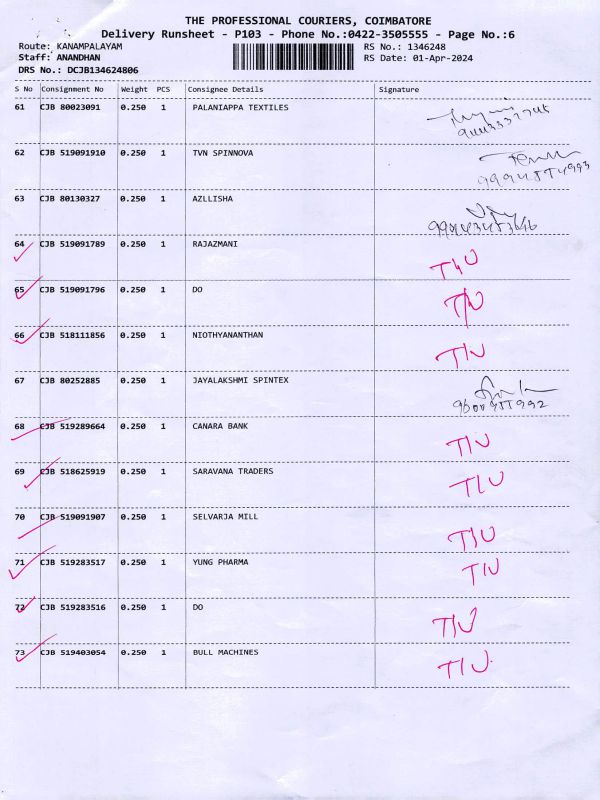 THE PROFESSIONAL COURIERS, COIMBATORE
Delivery Runsheet - P103 - Phone No.:0422-3505555 - Page No.:6
Route: KANAMPALAYAM RS No.: 1346248
Staff: ANANDHAN RS Date: 01-Apr-2024
DRS No.: DCJB134624806
S No Consignment No Weight PCS Consignee Details Signature
61 CJB 80023091 0.250 1 PALANIAPPA TEXTILES
62 CJB 519091910 0.250 1 TVN SPINNOVA
63 CJB 80130327 0.250 1 AZLLISHA
64 CJB 519091789 0.250 1 RAJAZMANI
65 CJB 519091796 0.250 1 DO
66 CJB 518111856 0.250 1 NIOTHYANANTHAN
67 CJB 80252885 0.250 1 JAYALAKSHMI SPINTEX
68 CJB 519289664 0.250 1 CANARA BANK T/U
69 CJB 518625919 0.250 1 SARAVANA TRADERS T/U
70 CJB 519091907 0.250 1 SELVARJA MILL T/U
71 CJB 519283517 0.250 1 YUNG PHARMA T/U
72 CJB 519283516 0.250 1 DO T/U
73 CJB 519403054 0.250 1 BULL MACHINES T/U